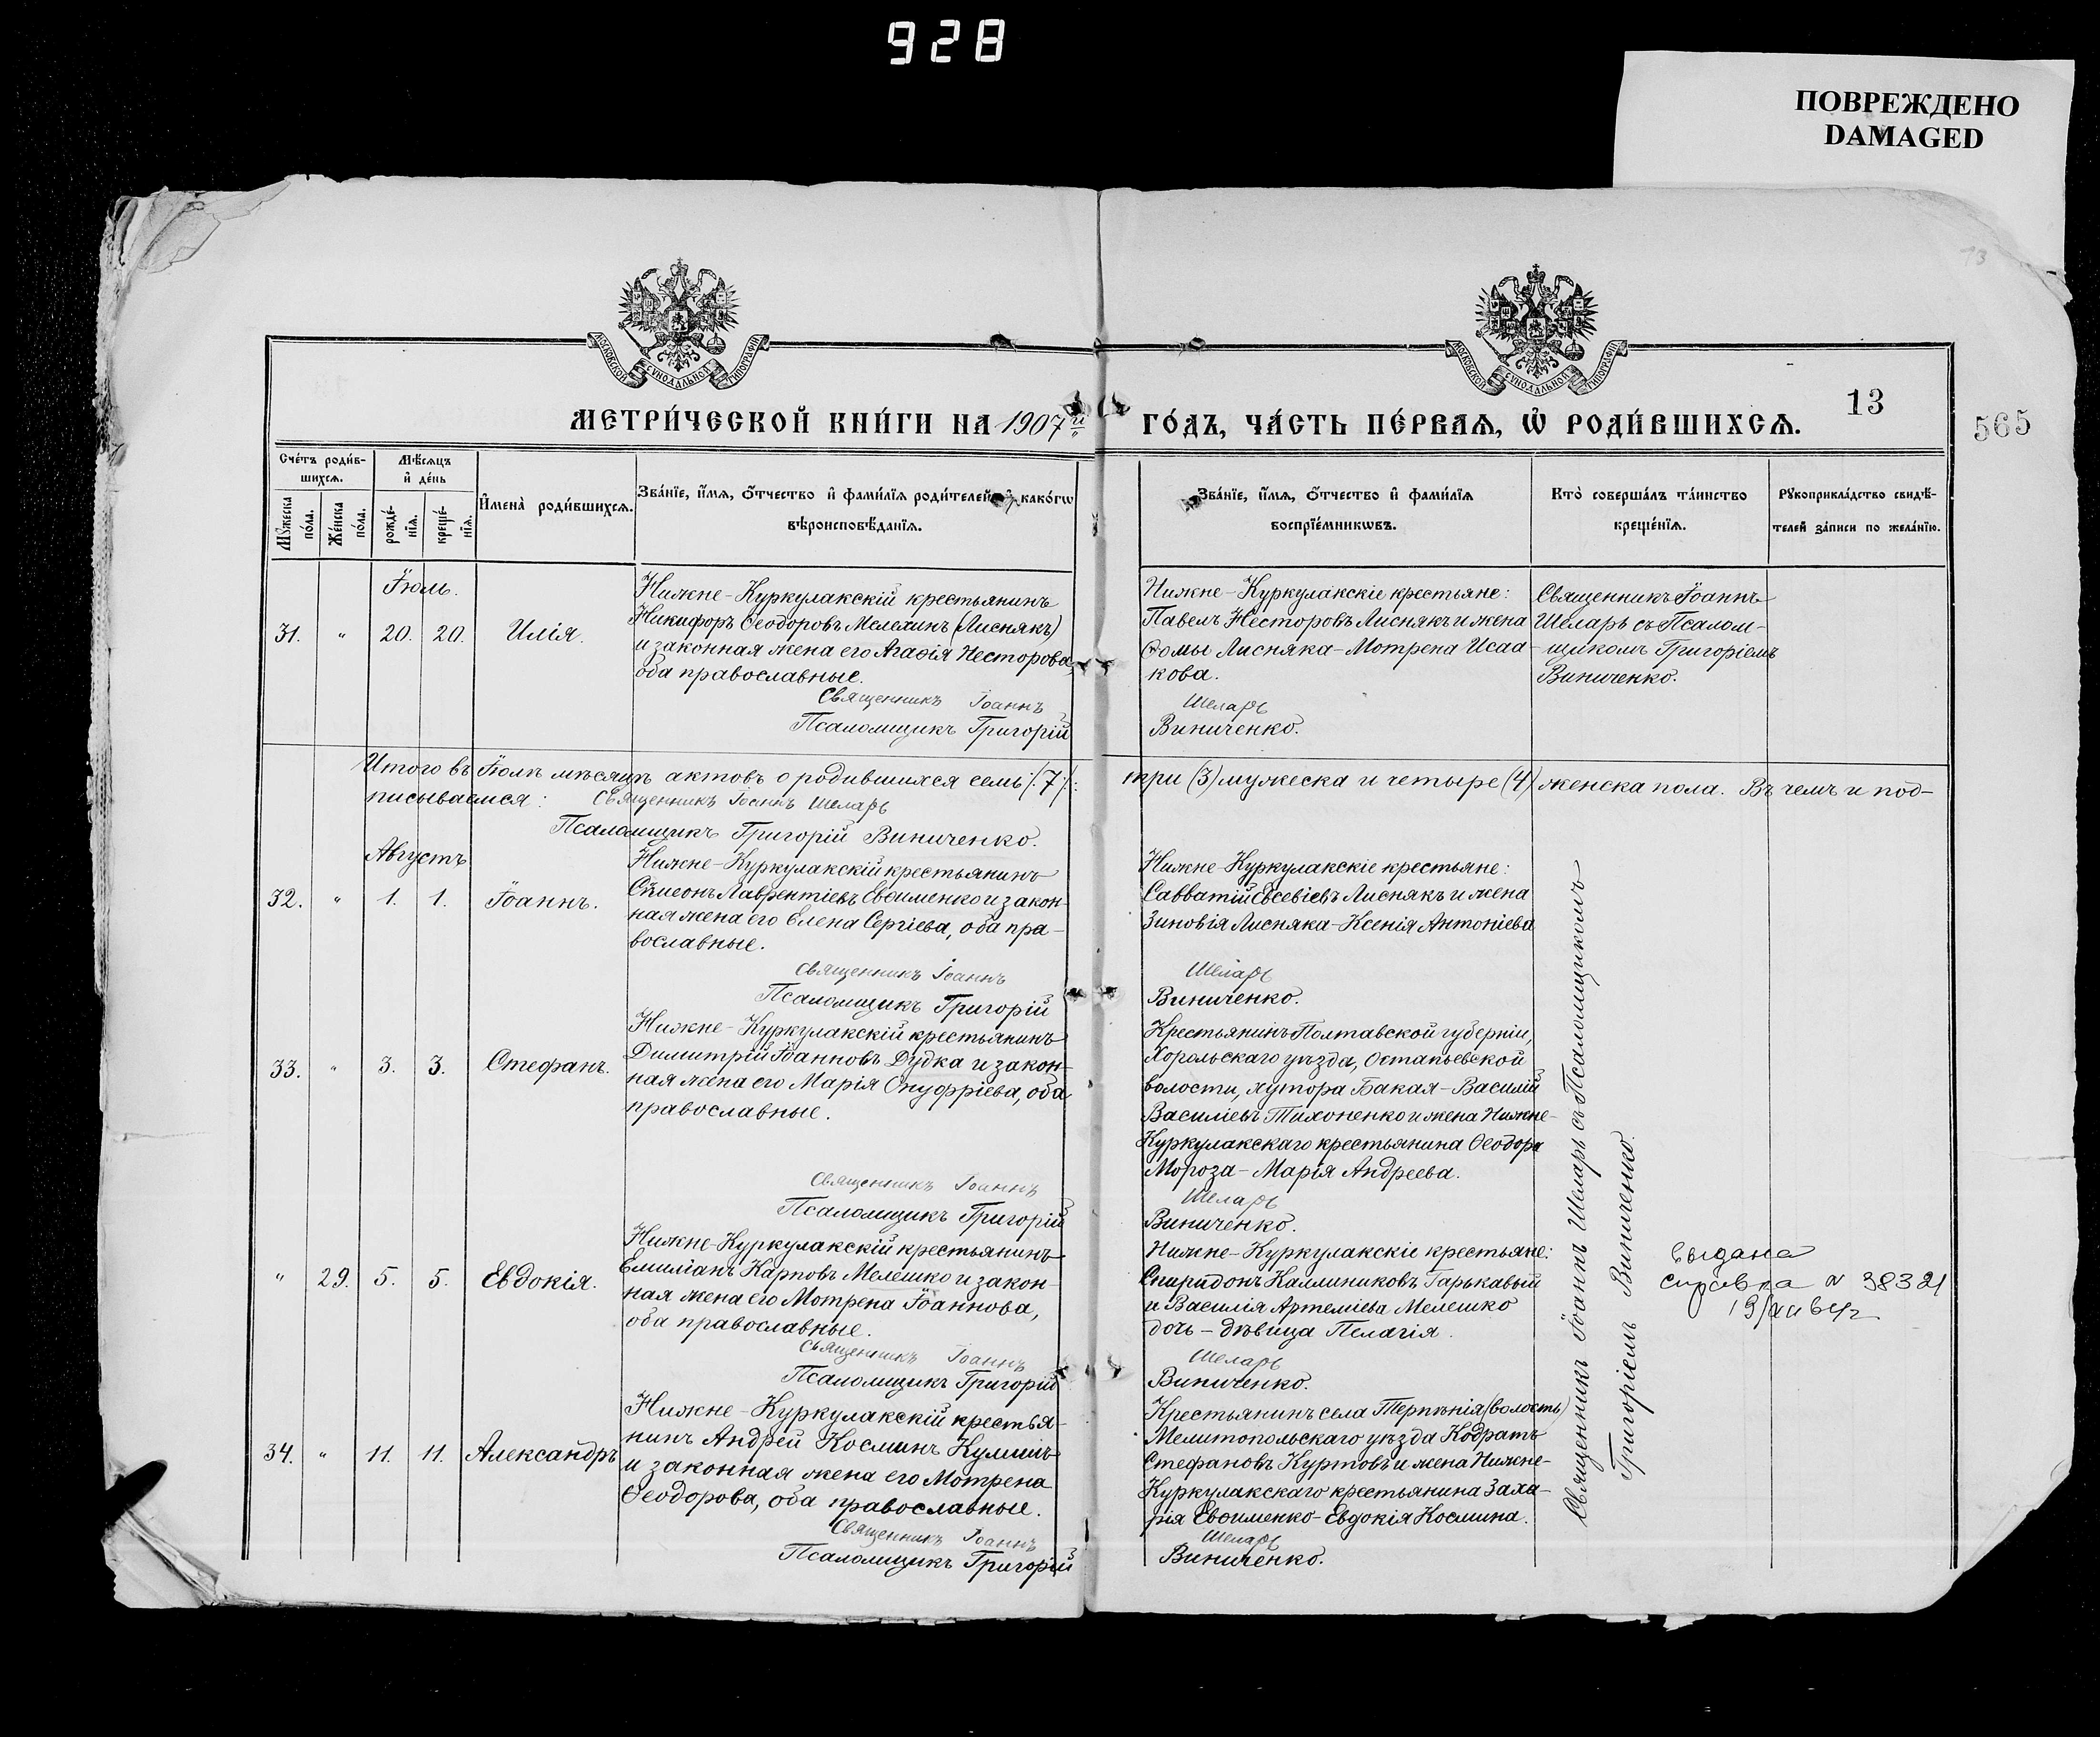 928
ПОВРЕЖДЕНО
DAMAGED
13
МОСКОВСКОЙ СУНОДАЛЬНОЙ ТИПОГРАФІИ
МОСКОВСКОЙ СУНОДАЛЬНОЙ ТИПОГРАФІИ
МЕТРИ́ЧЕСКОЙ КНИ́ГИ НА 1907й
ГО́ДЪ, ЧА́СТЬ ПЕ́РВАѦ, Ѡ҆ РОДИ́ВШИХСѦ.
13
565
Сче́тъ роди́в-
шихсѧ.
Мѣ́сѧцъ
и҆ де́нь
Мꙋ́жеска
по́ла.
Же́нска
по́ла.
рожде́-
нїѧ.
креще́-
нїѧ.
И҆мена̀ роди́вшихсѧ.
Зва́нїе, и҆́мѧ, ѻ҆́тчество и҆ фами́лїѧ роди́телей и҆ како́гѡ
вѣроисповѣ́данїѧ.
Зва́нїе, и҆́мѧ, ѻ҆́тчество и҆ фами́лїѧ
воспрїе́мникѡвъ.
Кто̀ соверша́лъ та́инство
креще́нїѧ.
Рꙋкоприкла́дство свидѣ́-
телей за́писи по жела́нїю.
Іюль.
31. " 20. 20. Илія.
Нижне-Куркулакскій крестьянинъ
Никифоръ Ѳеодоровъ Мелехинъ (Лиснякъ)
и законная жена его Агаѳія Несторова,
оба православные.
Священникъ Іоаннъ
Псаломщикъ Григорій
Нижне-Куркулакскіе крестьяне:
Павелъ Несторовъ Лиснякъ и жена
Ѳомы Лисняка-Мотрена Исаа-
кова.
Шеларь
Виниченко.
Священникъ Іоаннъ
Шеларь съ Псалом-
щикомъ Григоріемъ
Виниченко.
Итого въ Іюлѣ мѣсяцѣ актовъ о родившихся семь /:7:/:
три (3) мужеска и четыре (4) женска пола. Въ чемъ и под-
писываемся: Священникъ Іоаннъ Шеларь
Псаломщикъ Григорій Виниченко.
Августъ
32. " 1. 1. Іоаннъ.
Нижне-Куркулакскій крестьянинъ
Сѵмеонъ Лаврентіевъ Евѳименко и закон-
ная жена его Елена Сергіева, оба пра-
вославные.
Священникъ Іоаннъ
Псаломщикъ Григорій
Нижне-Куркулакскіе крестьяне:
Савватій Евсевіевъ Лиснякъ и жена
Зиновія Лисняка-Ксенія Антоніева
Шеларь
Виниченко.
33. " 3. 3. Стефанъ.
Нижне-Куркулакскій крестьянинъ
Димитрій Іоанновъ Дудка и закон-
ная жена его Марія Онуфріева, оба
православные.
Священникъ Іоаннъ
Псаломщикъ Григорій
Крестьянинъ Полтавской губерніи,
Хорольскаго уѣзда, Остапьевской
волости, хутора Бакая-Василій
Василіевъ Тихоненко и жена Нижне-
Куркулакскаго крестьянина Ѳеодора
Мороза-Марія Андреева.
Шеларь
Виниченко.
" 29. 5. 5. Евдокія.
Нижне-Куркулакскій крестьянинъ
Емиліанъ Карповъ Мелешко и закон-
ная жена его Мотрена Іоаннова,
оба православные.
Священникъ Іоаннъ
Псаломщикъ Григорій
Нижне-Куркулакскіе крестьяне:
Спиридонъ Каллиниковъ Гарькавый
и Василія Артеміева Мелешко
дочь-дѣвица Пелагія.
Шеларь
Виниченко.
выдана
справка N 38321
34. " 11. 11. Александръ
Нижне-Куркулакскій крестья-
нинъ Андрей Косминъ Кулишъ
и законная жена его Мотрена
Ѳеодорова, оба православные.
Священникъ Іоаннъ
Псаломщикъ Григорій
Крестьянинъ села Терпѣнія (волость)
Мелитопольскаго уѣзда Кодратъ
Стефановъ Куртовъ и жена Нижне-
Куркулакскаго крестьянина Заха-
рія Евѳименко-Евдокія Космина.
Шеларь
Виниченко.
Священникъ Іоаннъ Шеларь съ Псаломщикомъ
Григоріемъ Виниченко.